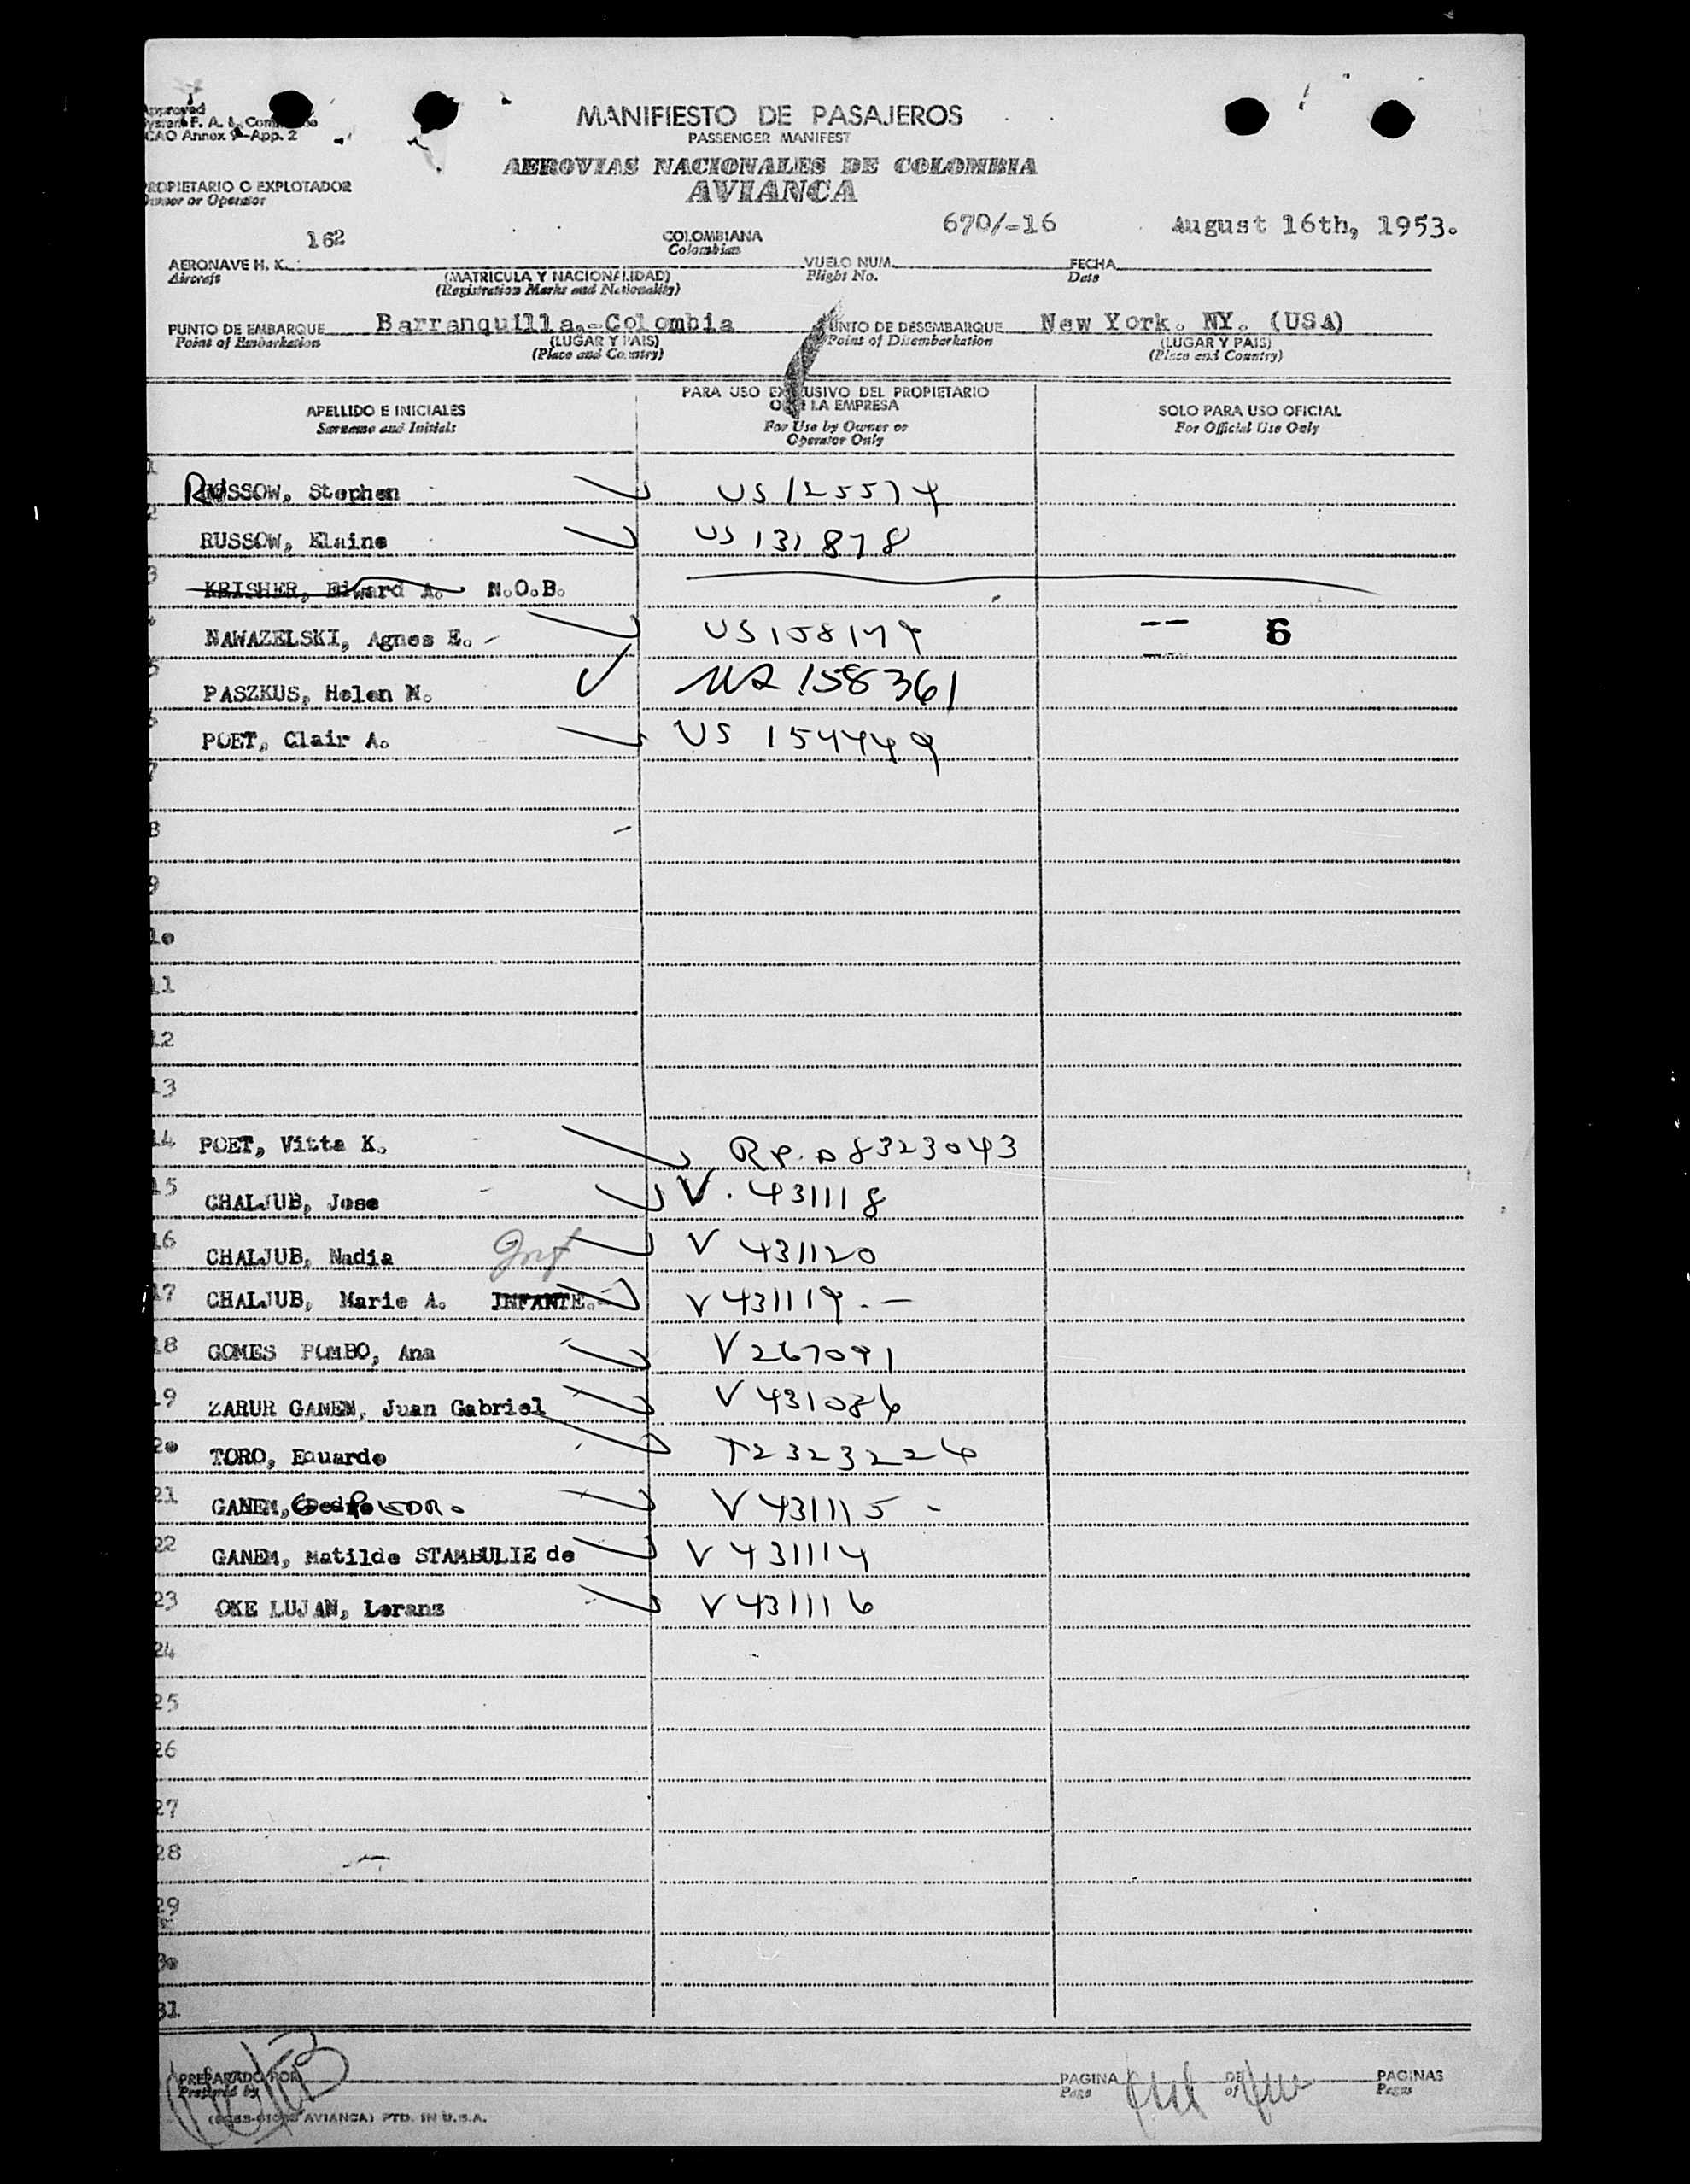 Approved
System F. A. L. Committee
ICAO Annex 9-App. 2
MANIFIESTO DE PASAJEROS
PASSENGER MANIFEST
AEROVIAS NACIONALES DE COLOMBIA
AVIANCA
PROPIETARIO O EXPLOTADOR
Owner or Operator
670/-16 August 16th, 1953.
162 COLOMBIANA
Colombian
AERONAVE H. K. VUELO NUM. FECHA
Aircraft (MATRICULA Y NACIONALIDAD) Flight No. Date
(Registration Marks and Nationality)
PUNTO DE EMBARQUE Barranquilla.-Colombia PUNTO DE DESEMBARQUE New York. NY. (USA)
Point of Embarkation (LUGAR Y PAIS) Point of Disembarkation (LUGAR Y PAIS)
(Place and Country) (Place and Country)
APELLIDO E INICIALES
Surname and Initials
PARA USO EXCLUSIVO DEL PROPIETARIO
O DE LA EMPRESA
For Use by Owner or
Operator Only
SOLO PARA USO OFICIAL
For Official Use Only
1 RUSSOW, Stephen US 125574
2 RUSSOW, Elaine US 131878
3 KRISHER, Edward A. N.O.B.
4 NAWAZELSKI, Agnes E. US 158179 -- 6
5 PASZKUS, Helen N. 158361
6 POET, Clair A. US 154449
7
8
9
10
11
12
13
14 POET, Vitta K. RP. A 8323043
15 CHALJUB, Jose V. 431118
16 CHALJUB, Nadia V 431120
17 CHALJUB, Marie A. INFANTE.- V 431119.-
18 GOMES POMBO, Ana V 267091
19 ZARUR GANEM, Juan Gabriel V 431086
20 TORO, Eduardo T2323226
21 GANEM, V 431115 -
22 GANEM, Matilde STAMBULIE de V 431114
23 OKE LUJAN, Lorans V 431116
24
25
26
27
28
29
30
31
PREPARADO POR PAGINA DE PAGINAS
Prepared by Page of Pages
AVIANCA) PTD. IN U.S.A.